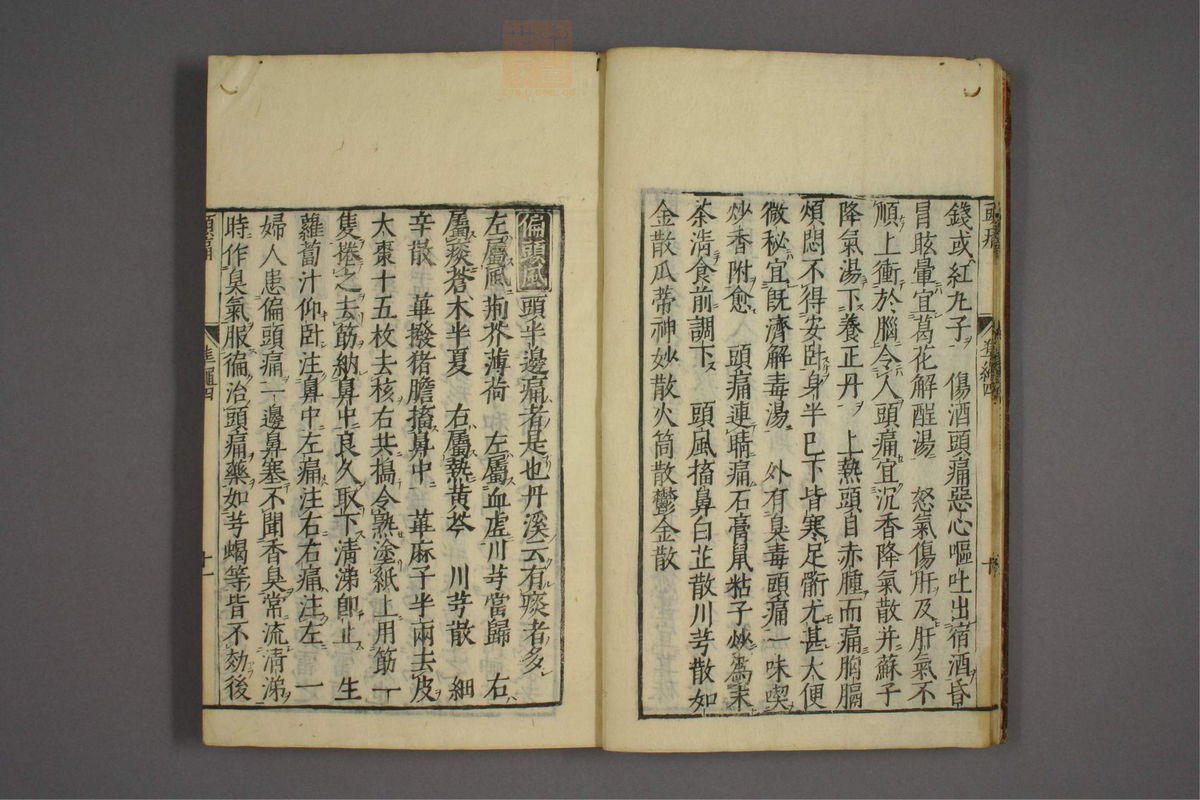 錢或紅丸子　傷酒頭痛惡心嘔吐出宿酒昏
冒眩暈宜葛花解酲湯　怒氣傷肝及肝氣不
順上衝於腦令人頭痛宜沉香降氣散并蘇子
降氣湯下養正丹　上熱頭目赤腫而痛胸膈
煩悶不得安卧身半已下皆寒足䯒尤甚大便
微秘宜既濟解毒湯　外有臭毒頭痛一味喫
炒香附愈　頭痛連睛痛石膏鼠粘子炒爲末
茶清食前調下　頭風㨨鼻白芷散川芎散如
金散瓜蒂神妙散火筒散鬱金散
偏頭風　頭半邊痛者是也丹溪云有痰者多
左屬風荆芥薄荷　左屬血虛川芎當歸　右
屬痰蒼木半夏　右屬熱黄芩　川芎散　細
辛散　蓽撥猪膽㨨鼻中　萆麻子半兩去皮
太棗十五枚去核右共搗令熟塗紙上用筯一
隻捲之去筯納鼻中良久取下清涕即止　生
蘿蔔汁仰卧注鼻中左痛注右右痛注左　一
婦人患偏頭痛一邊鼻塞不聞香臭常流清涕
時作臭氣服徧治頭痛藥如芎蝎等皆不効後
頭痛
準繩四
十一